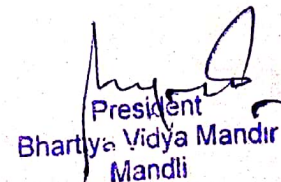 President
Bhartiya Vidya Mandir
Mandli